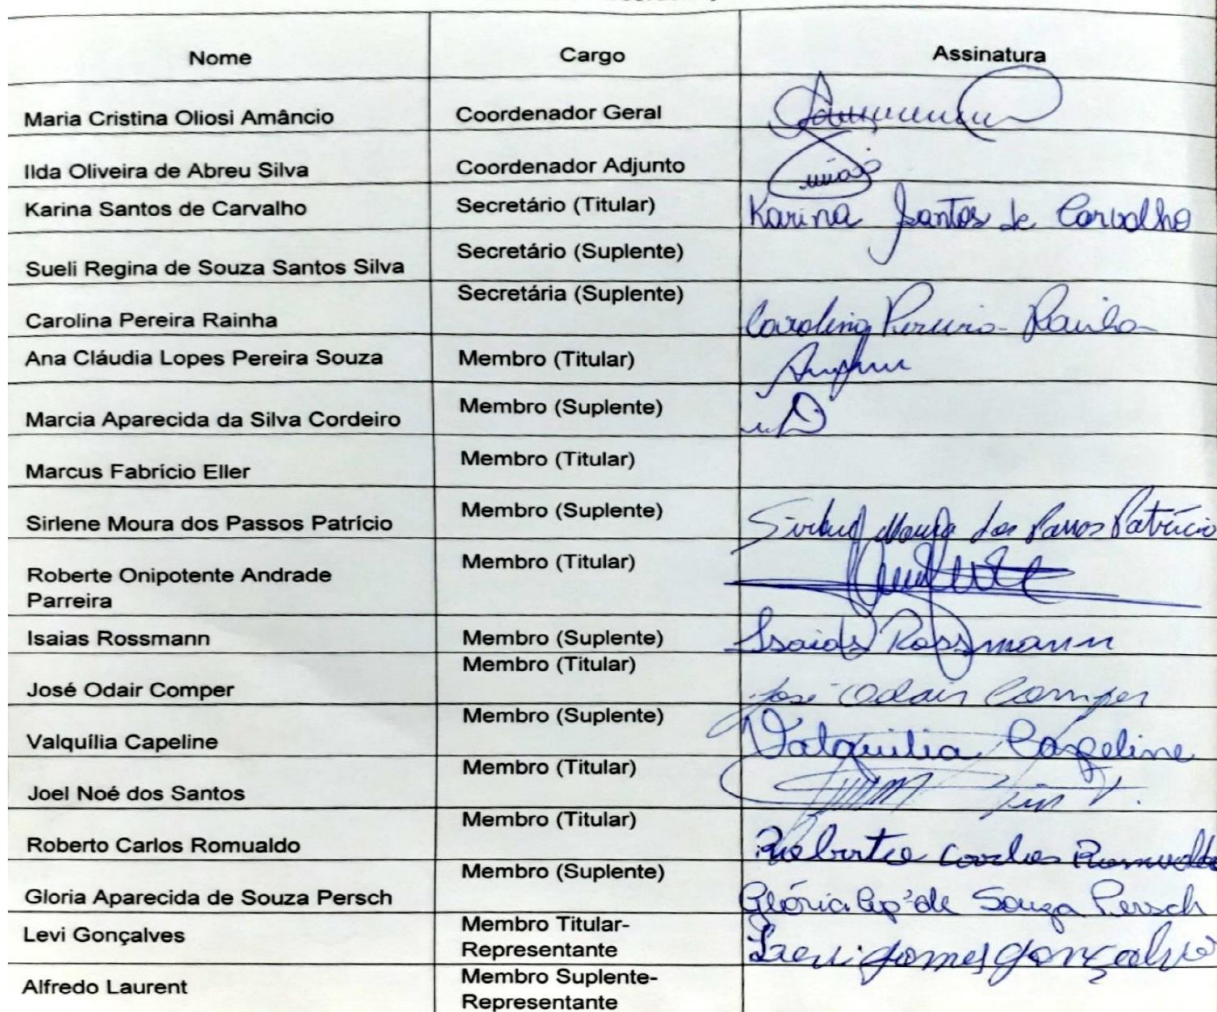 Nome Cargo Assinatura
Maria Cristina Oliosi Amâncio Coordenador Geral
Ilda Oliveira de Abreu Silva Coordenador Adjunto
Karina Santos de Carvalho Secretário (Titular) Karina Santos de Carvalho
Sueli Regina de Souza Santos Silva Secretário (Suplente)
Carolina Pereira Rainha Secretária (Suplente) Carolina Pereira Rainha
Ana Cláudia Lopes Pereira Souza Membro (Titular)
Marcia Aparecida da Silva Cordeiro Membro (Suplente)
Marcus Fabrício Eller Membro (Titular)
Sirlene Moura dos Passos Patrício Membro (Suplente) Sirlene Moura dos Passos Patrício
Roberte Onipotente Andrade Membro (Titular)
Parreira
Isaias Rossmann Membro (Suplente) Isaias Rossmann
José Odair Comper Membro (Titular) José Odair Comper
Valquília Capeline Membro (Suplente) Valquilia Capeline
Joel Noé dos Santos Membro (Titular)
Roberto Carlos Romualdo Membro (Titular) Roberto Carlos Romualdo
Gloria Aparecida de Souza Persch Membro (Suplente) Glória Apª de Souza Persch
Levi Gonçalves Membro Titular- Levi Gomes Gonçalves
Representante
Alfredo Laurent Membro Suplente-
Representante